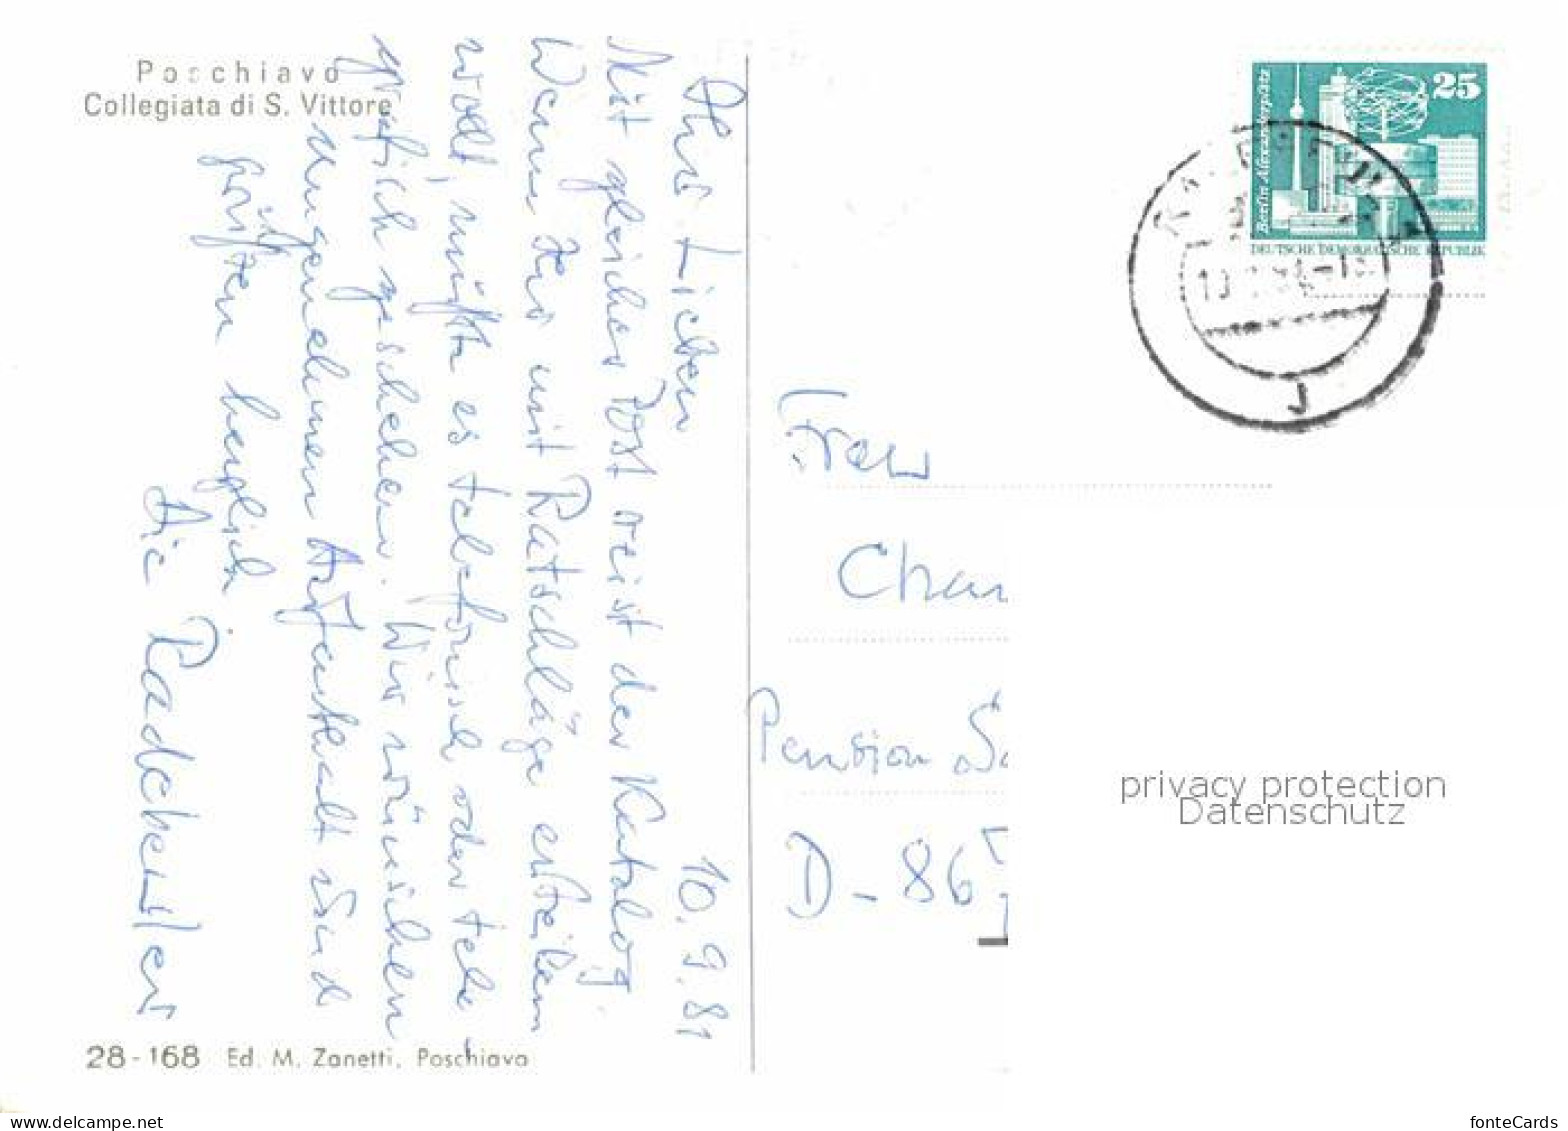 Poschiavo
Collegiata di S. Vittore
Ihr Lieben 10. 9. 81
Mit gleicher Post reist der Katalog.
Wenn Ihr mit Ratschläge erteilen
wollt, müßte es telefonisch oder tele-
grafisch geschehen. Wir wünschen
angenehmen Aufenthalt und
grüßen herzlich
Die Radebeuler
28-168 Ed. M. Zanetti, Poschiavo
25
Berlin Alexanderplatz
DEUTSCHE DEMOKRATISCHE REPUBLIK
J
Frau
Char
Pension
D-86
privacy protection
Datenschutz
fonteCards